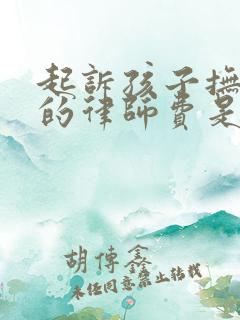 起訴孩子撫
的律師費是
胡傅鑫
未经同意禁止转载